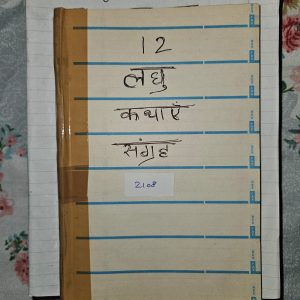 12
लघु
कथाएँ
संग्रह
2108